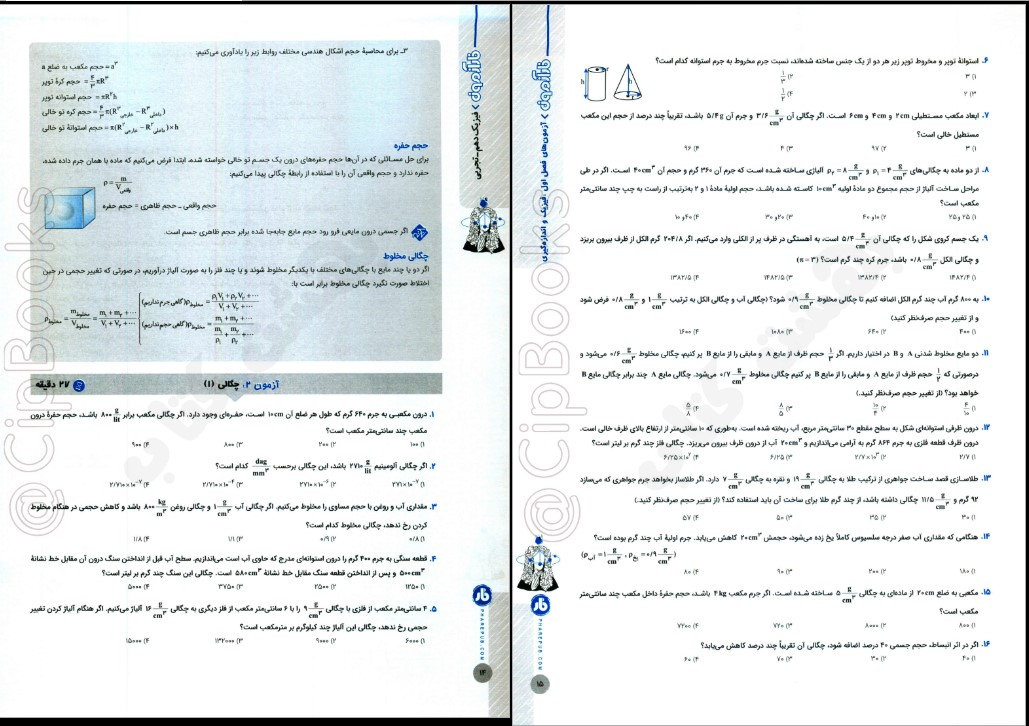 ۳ـ برای محاسبهٔ حجم اشکال هندسی مختلف روابط زیر را یادآوری می‌کنیم:
حجم مکعب به ضلع a = a³
حجم کرهٔ توپر = ۴/۳ πR³
حجم استوانه توپر = πR²h
حجم کره تو خالی = ۴/۳ π(R³خارجی − R³داخلی)
حجم استوانهٔ تو خالی = π(R²خارجی − R²داخلی)×h
حجم حفره
برای حل مسائلی که در آن‌ها حجم حفره‌های درون یک جسم تو خالی خواسته شده، ابتدا فرض می‌کنیم که ماده با همان جرم داده شده،
حفره ندارد و حجم واقعی آن را با استفاده از رابطهٔ چگالی پیدا می‌کنیم:
ρ = m / Vواقعی
حجم واقعی ـ حجم ظاهری = حجم حفره
اگر جسمی درون مایعی فرو رود حجم مایع جابه‌جا شده برابر حجم ظاهری جسم است.
چگالی مخلوط
اگر دو یا چند مایع با چگالی‌های مختلف با یکدیگر مخلوط شوند و یا چند فلز را به صورت آلیاژ درآوریم، در صورتی که تغییر حجمی در حین
اختلاط صورت نگیرد چگالی مخلوط برابر است با:
ρمخلوط = mمخلوط / Vمخلوط = (m₁+m₂+⋯) / (V₁+V₂+⋯)
(گاهی جرم نداریم) ρمخلوط = (ρ₁V₁+ρ₂V₂+⋯) / (V₁+V₂+⋯)
(گاهی حجم نداریم) ρمخلوط = (m₁+m₂+⋯) / (m₁/ρ₁ + m₂/ρ₂ +⋯)
آزمون ۲: چگالی (۱)
۲۷ دقیقه
۱. درون مکعبی به جرم ۶۴۰ گرم که طول هر ضلع آن ۱۰cm است، حفره‌ای وجود دارد. اگر چگالی مکعب برابر ۸۰۰ g/lit باشد، حجم حفرهٔ درون
مکعب چند سانتی‌متر مکعب است؟
۱) ۱۰۰ ۲) ۲۰۰ ۳) ۸۰۰ ۴) ۹۰۰
۲. اگر چگالی آلومینیم ۲۷۱۰ g/lit باشد، این چگالی برحسب dag/mm³ کدام است؟
۱) ۲۷۱×۱۰⁻⁷ ۲) ۲۷۱۰×۱۰⁻⁶ ۳) ۲/۷۱۰×۱۰⁻⁴ ۴) ۲/۷۱۰×۱۰⁻⁷
۳. مقداری آب و روغن با حجم مساوی را مخلوط می‌کنیم. اگر چگالی آب ۱ g/cm³ و چگالی روغن ۸۰۰ kg/m³ باشد و کاهش حجمی در هنگام مخلوط
کردن رخ ندهد، چگالی مخلوط کدام است؟
۱) ۰/۸ ۲) ۰/۹ ۳) ۱/۱ ۴) ۱/۸
۴. قطعه سنگی به جرم ۴۰۰ گرم را درون استوانه‌ای مدرج که حاوی آب است می‌اندازیم. سطح آب قبل از انداختن سنگ درون آن مقابل خط نشانهٔ
۵۰۰cm³ و پس از انداختن قطعه سنگ مقابل خط نشانهٔ ۵۸۰cm³ است. چگالی این سنگ چند گرم بر لیتر است؟
۱) ۱۲۵۰ ۲) ۲۵۰۰ ۳) ۳۷۵۰ ۴) ۵۰۰۰
۵. ۴ سانتی‌متر مکعب از فلزی با چگالی ۹ g/cm³ را با ۶ سانتی‌متر مکعب از فلز دیگری به چگالی ۱۶ g/cm³ آلیاژ می‌کنیم. اگر هنگام آلیاژ کردن تغییر
حجمی رخ ندهد، چگالی این آلیاژ چند کیلوگرم بر مترمکعب است؟
۱) ۶۰۰۰ ۲) ۹۰۰۰ ۳) ۱۳۲۰۰ ۴) ۱۵۰۰۰
فیزیک دهم ـ تجربی
PHAREPUB.COM
۱۴
آزمون‌های فصل اول، فیزیک و اندازه‌گیری
۶. استوانهٔ توپر و مخروط توپر زیر هر دو از یک جنس ساخته شده‌اند، نسبت جرم مخروط به جرم استوانه کدام است؟
۱) ۳ ۲) ۱/۳
۳) ۲ ۴) ۱/۲
h h
۷. ابعاد مکعب مستطیلی ۲cm و ۴cm و ۶cm است. اگر چگالی آن ۳/۶ g/cm³ و جرم آن ۵/۴g باشد، تقریباً چند درصد از حجم این مکعب
مستطیل خالی است؟
۱) ۳ ۲) ۹۷ ۳) ۴ ۴) ۹۶
۸. از دو ماده به چگالی‌های ρ₁ = ۴ g/cm³ و ρ₂ = ۸ g/cm³ آلیاژی ساخته شده است که جرم آن ۳۶۰ گرم و حجم آن ۴۰cm³ است. اگر در طی
مراحل ساخت آلیاژ از حجم مجموع دو مادهٔ اولیه ۱۰cm³ کاسته شده باشد، حجم اولیهٔ مادهٔ ۱ و ۲ به‌ترتیب از راست به چپ چند سانتی‌متر
مکعب است؟
۱) ۲۵ و ۲۵ ۲) ۱۰ و ۴۰ ۳) ۲۰ و ۳۰ ۴) ۴۰ و ۱۰
۹. یک جسم کروی شکل را که چگالی آن ۵/۴ g/cm³ است، به آهستگی در ظرف پر از الکلی وارد می‌کنیم. اگر ۲۰۴/۸ گرم الکل از ظرف بیرون بریزد
و چگالی الکل ۰/۸ g/cm³ باشد، جرم کره چند گرم است؟ (π = ۳)
۱) ۱۴۸۲/۴ ۲) ۱۳۸۲/۴ ۳) ۱۴۸۲/۵ ۴) ۱۳۸۲/۵
۱۰. به ۸۰۰ گرم آب چند گرم الکل اضافه کنیم تا چگالی مخلوط ۰/۹ g/cm³ شود؟ (چگالی آب و چگالی الکل به ترتیب ۱ g/cm³ و ۰/۸ g/cm³ فرض شود
و از تغییر حجم صرف‌نظر کنید)
۱) ۴۰۰ ۲) ۶۴۰ ۳) ۱۰۸۰ ۴) ۱۶۰۰
۱۱. دو مایع مخلوط شدنی A و B در اختیار داریم. اگر ۱/۳ حجم ظرف از مایع A و مابقی را از مایع B پر کنیم، چگالی مخلوط ۰/۶ g/cm³ می‌شود و
درصورتی که ۱/۲ حجم ظرف از مایع A و مابقی را از مایع B پر کنیم چگالی مخلوط ۰/۷ g/cm³ می‌شود. چگالی مایع A چند برابر چگالی مایع B
خواهد بود؟ (از تغییر حجم صرف‌نظر کنید.)
۱) ۴/۱۰ ۲) ۱۰/۴ ۳) ۸/۵ ۴) ۵/۸
۱۲. درون ظرفی استوانه‌ای شکل به سطح مقطع ۳۰ سانتی‌متر مربع، آب ریخته شده است. به‌طوری که ۱۰ سانتی‌متر از ارتفاع بالای ظرف خالی است.
درون ظرف قطعه فلزی به جرم ۸۶۴ گرم به آرامی می‌اندازیم و ۲۰cm³ آب از درون ظرف بیرون می‌ریزد. چگالی فلز چند گرم بر لیتر است؟
۱) ۲/۷ ۲) ۲/۷×۱۰³ ۳) ۶/۲۵ ۴) ۶/۲۵×۱۰³
۱۳. طلاسازی قصد ساخت جواهری از ترکیب طلا به چگالی ۱۹ g/cm³ و نقره به چگالی ۷ g/cm³ دارد. اگر طلاساز بخواهد جرم جواهری که می‌سازد
۹۲ گرم و ۱۱/۵ g/cm³ چگالی داشته باشد، از چند گرم طلا برای ساخت آن باید استفاده کند؟ (از تغییر حجم صرف‌نظر کنید.)
۱) ۳۰ ۲) ۳۵ ۳) ۵۰ ۴) ۵۷
۱۴. هنگامی که مقداری آب صفر درجه سلسیوس کاملاً یخ زده می‌شود، حجمش ۲۰cm³ کاهش می‌یابد. جرم اولیهٔ آب چند گرم بوده است؟
(ρآب = ۱ g/cm³ , ρیخ = ۰/۹ g/cm³)
۱) ۱۸۰ ۲) ۲۰۰ ۳) ۹۰ ۴) ۸۰
۱۵. مکعبی به ضلع ۲۰cm از ماده‌ای به چگالی ۵ g/cm³ ساخته شده است. اگر جرم مکعب ۴kg باشد، حجم حفرهٔ داخل مکعب چند سانتی‌متر
مکعب است؟
۱) ۸۰۰ ۲) ۸۰۰۰ ۳) ۷۲۰ ۴) ۷۲۰۰
۱۶. اگر در اثر انبساط، حجم جسمی ۴۰ درصد اضافه شود، چگالی آن تقریباً چند درصد کاهش می‌یابد؟
۱) ۴۰ ۲) ۳۰ ۳) ۷۰ ۴) ۶۰
PHAREPUB.COM
۱۵
@CipBooks
@CipBooks